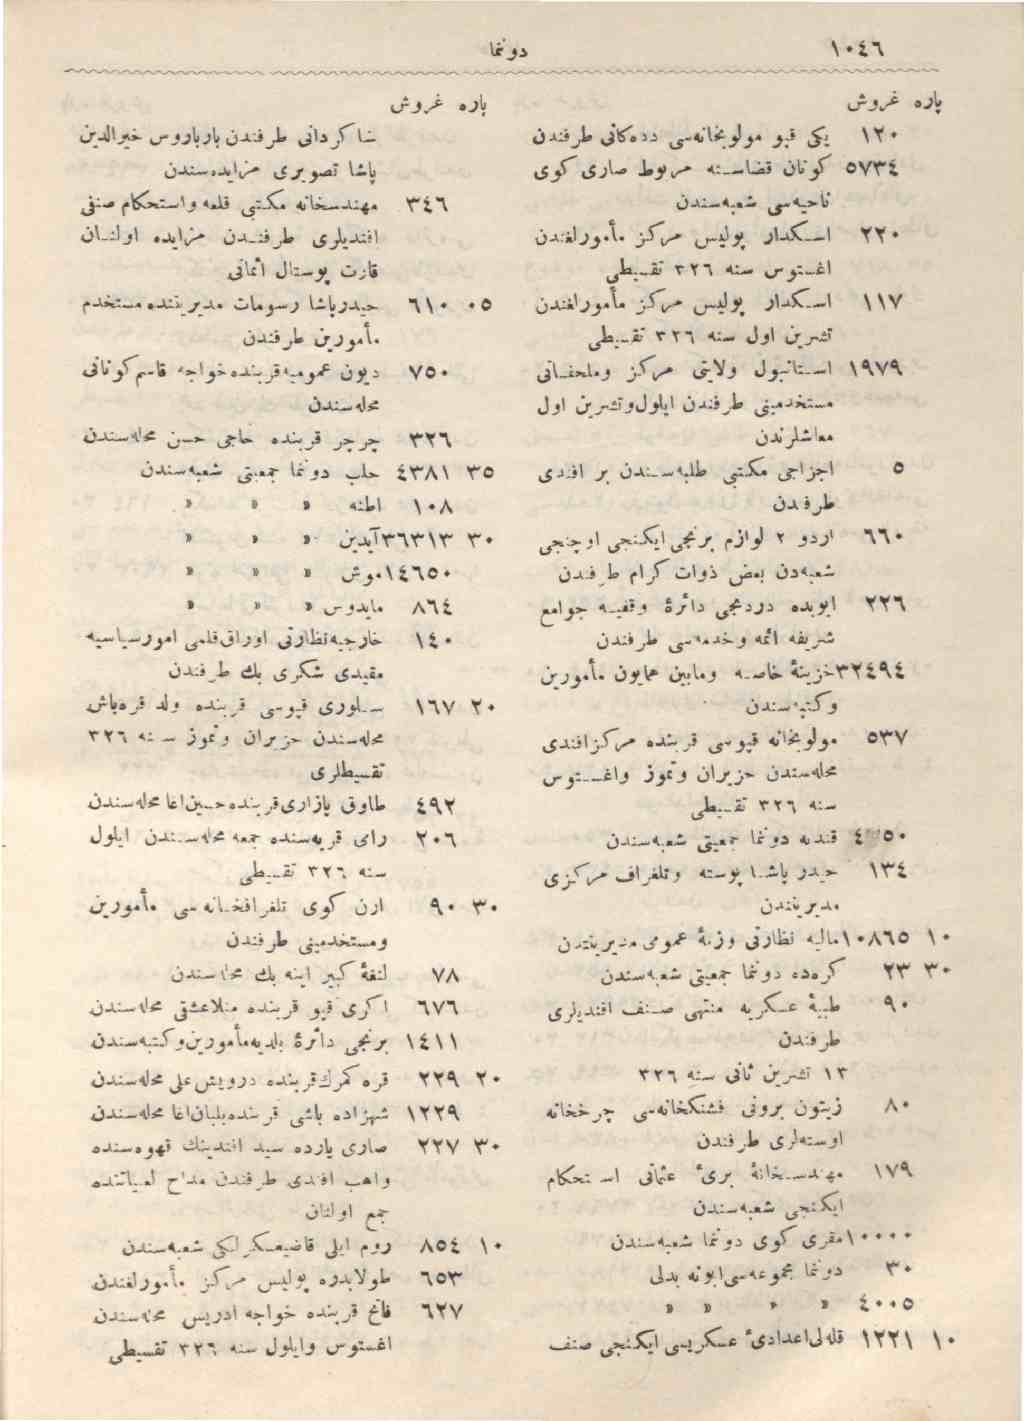 ١٠٤٦ دونما
پاره غروش
١٢٠ یکی قپو مولویخانه‌سی دده‌کانی طرفندن
٥٧٣٤ کوتان قضاسنه مربوط صاری کوی
ناحیه‌سی شعبه‌سندن
٢٢٠ اسکدار پولیس مرکز مأمورلغندن
اغستوس سنه ٣٢٦ تقسیطی
١١٧ اسکدار پولیس مرکز مأمورلغندن
تشرین اول سنه ٣٢٦ تقسیطی
١٩٧٩ استانبول ولایتی مرکز وملحقاتی
مستخدمینی طرفندن ایلول وتشرین اول
معاشلرندن
٥ اجزاجی مکتبی طلبه‌سندن بر افندی
طرفندن
٦٦٠ اردو ٢ لوازم برنجی ایکنجی اوچنجی
شعبه‌دن بعض ذوات کرام طرفندن
٢٢٦ ایوبده دردنجی دائرهٔ وقفیه جوامع
شریفه ائمه وخدمه‌سی طرفندن
٣٢٤٩٤ خزینهٔ خاصه ومابین همایون مأمورین
وکتبه‌سندن
٥٣٧ مولویخانه قپوسی قربنده مرکز افندی
محله‌سندن حزیران وتموز واغستوس
سنه ٣٢٦ تقسیطی
٤٥٠ قندیه دونما جمعیتی شعبه‌سندن
١٣٤ حیدر پاشا پوسته وتلغراف مرکزی
مدیریتندن
١٠ ١٠٨٦٥ مالیه نظارتی وزنهٔ عمومی مدیریتندن
٣٠ ٢٣ کره‌ده دونما جمعیتی شعبه‌سندن
٩٠ طبیهٔ عسکریه منتهی صنف افندیلری
طرفندن
١٣ تشرین ثانی سنه ٣٢٦
٨٠ زیتون برونی فشنکخانه‌سی چرخخانه
اوسته‌لری طرفندن
١٧٩ مهندسخانهٔ بریٔ عثمانی استحکام
ایکنجی شعبه‌سندن
١٠٠٠٠ مقری کوی دونما شعبه‌سندن
٣٠ دونما مجموعه‌سی ابونه بدلی
٤٠٠٥ » » » »
١٠ ١٢٢١ قله‌لی اعدادیٔ عسکریسی ایکنجی صنف
پاره غروش
شاکردانی طرفندن بارباروس خیرالدین
پاشا تصویری مزایده‌سندن
٣٤٦ مهندسخانه مکتبی قلعه واستحکام صنفی
افندیلری طرفندن مزایده اولنان
قارت پوستال اثمانی
٠٥ ٦١٠ حیدرپاشا رسومات مدیریتنده مستخدم
مأمورین طرفندن
٧٥٠ دیون عمومیه قربنده خواجه قاسم کونانی
محله‌سندن
٣٢٦ چرچر قربنده حاجی حسن محله‌سندن
٣٥ ٤٣٨١ حلب دونما جمعیتی شعبه‌سندن
١٠٨ اطنه » » »
٣٠ ٣٦٣١٣ آیدین » » »
١٤٦٥٠ موش » » »
٨٦٤ مایدوس » » »
١٤٠ خارجیه نظارتی اوراق قلمی امور سیاسیه
مقیدی شکری بك طرفندن
٢٠ ١٦٧ سلوری قپوسی قربنده ولد قره‌باش
محله‌سندن حزیران وتموز سنه ٣٢٦
تقسیطلری
٤٩٢ طاوق پازاری قربنده حسین اغا محله‌سندن
٢٠٦ رای قریه‌سنده جمعه محله‌سندن ایلول
سنه ٣٢٦ تقسیطی
٣٠ ٩٠ ارن کوی تلغرافخانه‌سی مأمورین
ومستخدمینی طرفندن
٧٨ لنغهٔ کبیر اینه بك محله‌سندن
٦٧٦ اکری قپو قربنده منلاعشقی محله‌سندن
١٤١١ برنجی دائرهٔ بلدیه مأمورین وکتبه‌سندن
٢٠ ٢٢٩ قره کمرك قربنده درویش علی محله‌سندن
١٢٢٩ شهزاده باشی قربنده بلبان اغا محله‌سندن
٣٠ ٢٢٧ صاری یارده سید افندینك قهوه‌سنده
واهب افندی طرفندن مداح لعبیاتنده
جمع اولنان
١٠ ٨٥٤ روم ایلی قاضیعسکرلکی شعبه‌سندن
٦٥٣ طولابدره پولیس مرکز مأمورلغندن
٦٢٧ فاتح قربنده خواجه ادریس محله‌سندن
اغستوس وایلول سنه ٣٢٦ تقسیطی